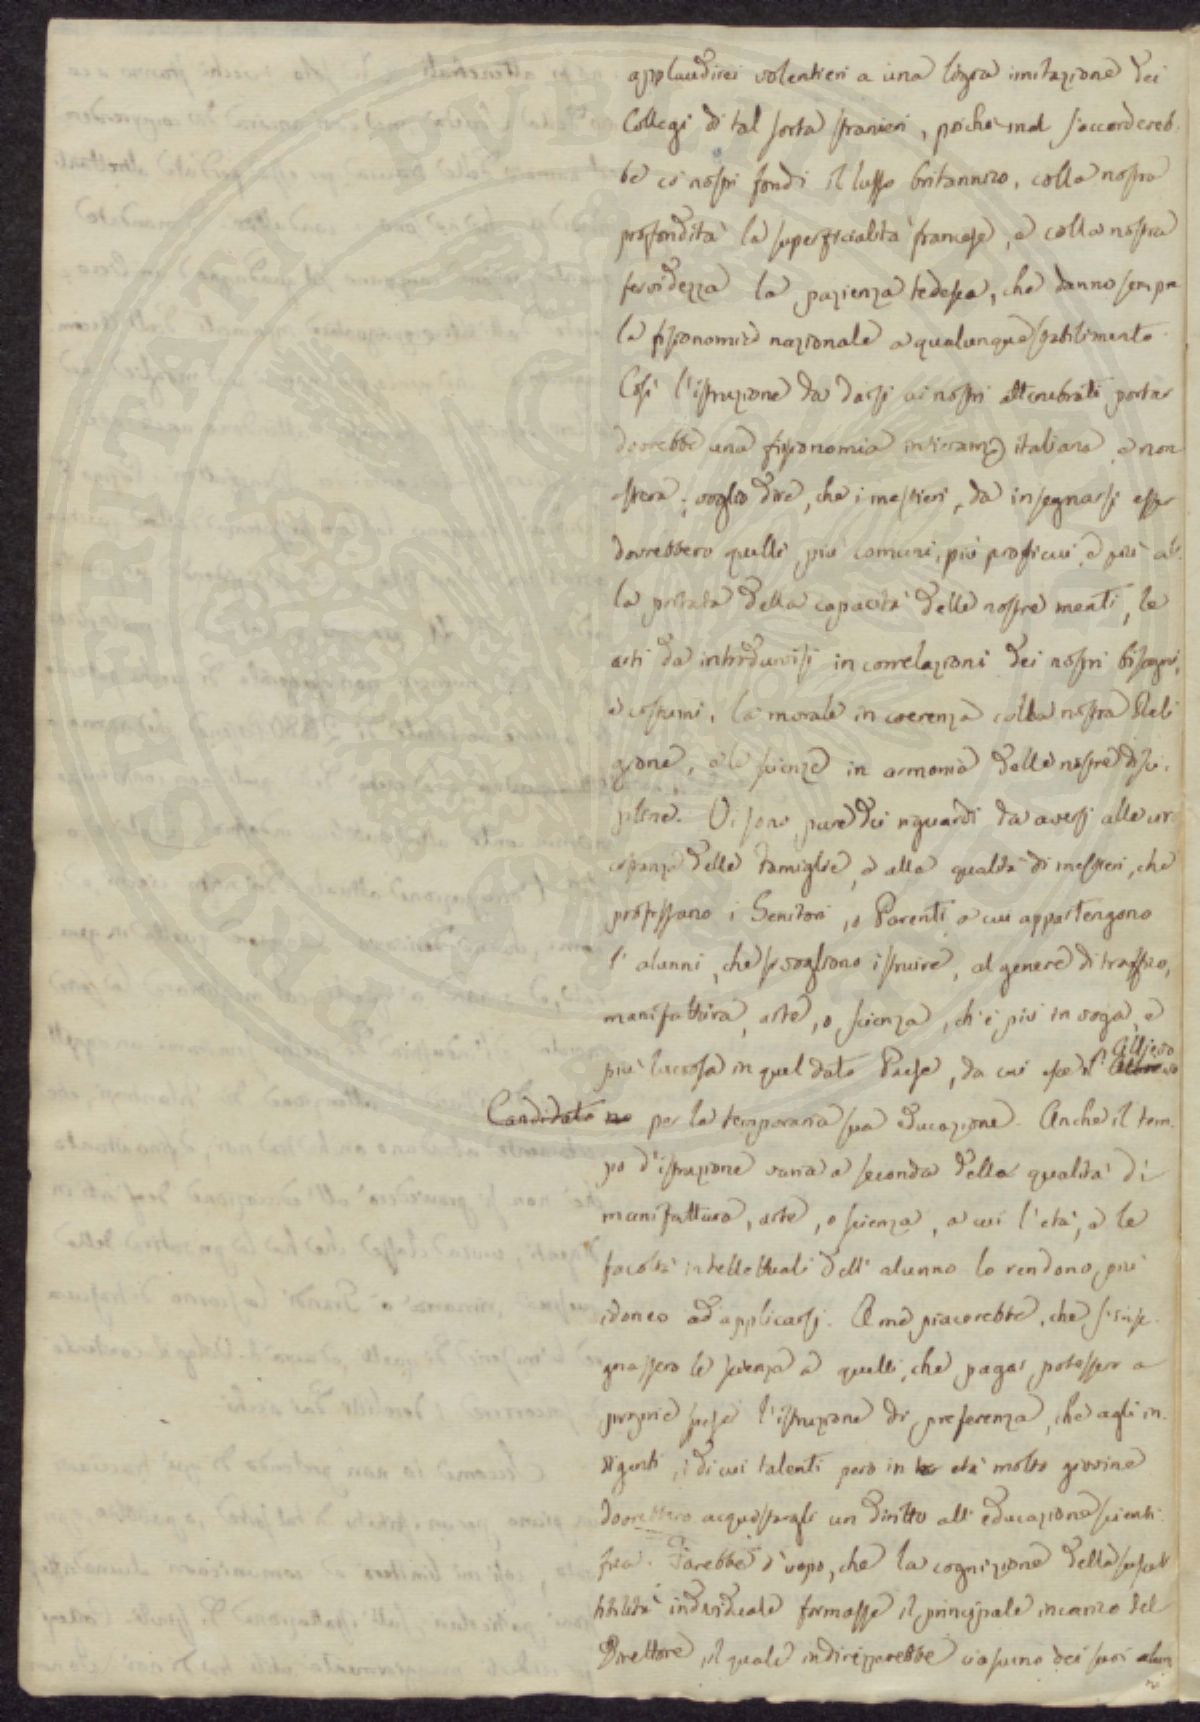 applaudirei volentieri a una ligia imitazione dei
Collegi di tal sorta stranieri, poichè mal s'accordereb-
be co' nostri fondi il lusso britannico, colla nostra
profondità la superficialità francese, e colla nostra
fervidezza la pazienza tedesca, che danno sempre
la fisionomia nazionale a qualunque stabilimento.
Così l'istruzione da darsi ai nostri attenebrati portar
dovrebbe una fisionomia intieram.e italiana, e non
stera; voglio dire, che i mestieri, da insegnarsi esser
dovrebbero quelli più comuni, più proficui, e più al-
la portata della capacità delle nostre menti, le
arti da introdursi in correlazioni dei nostri bisogni,
e costumi, la morale in coerenza colla nostra Reli
gione, e le scienze in armonia delle nostre disci-
pline. Vi sono pure dei riguardi da aversi alle cir-
costanze delle famiglie, e alla qualità di mestieri, che
professano i Genitori, o Parenti, a cui appartengono
l'alunni, che si vogliono istruire, al genere di traffico,
manifattura, arte, o scienza, ch'è più in voga, e
più lucrosa in quel dato Paese, da cui esce l'Allievo
Candidato per la temporaria sua educazione. Anche il tem-
po d'istruzione varia a seconda della qualità di
manifattura, arte, o scienza, a cui l'età, e le
facoltà intellettuali dell'alunno lo rendono più
idoneo ad applicarsi. A me piacerebbe, che s'inse-
gnassero le scienze a quelli, che pagar potessero a
proprie spese l'istruzione di preferenza, che agli in-
digenti, i di cui talenti però in età molto giovine
dovrebbero acquistargli un diritto all'educazione scienti-
fica. Farebbe d'uopo, che la cognizione della suscet
tibilità individuale formasse il principale incarico del
Direttore, il quale indirizzarebbe ciascuno dei suoi alun
ni